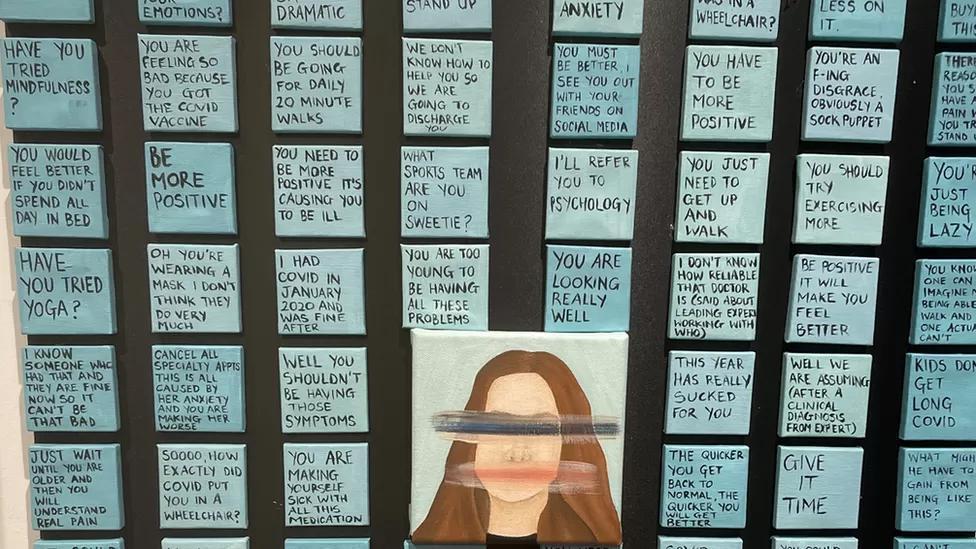 YOUR
EMOTIONS?
DRAMATIC
STAND UP
ANXIETY
WAS IN A
WHEELCHAIR?
LESS ON
IT.
BUY
THIS
HAVE YOU
TRIED
MINDFULNESS
?
YOU ARE
FEELING SO
BAD BECAUSE
YOU GOT
THE COVID
VACCINE
YOU SHOULD
BE GOING
FOR DAILY
20 MINUTE
WALKS
WE DON'T
KNOW HOW TO
HELP YOU SO
WE ARE
GOING TO
DISCHARGE
YOU
YOU MUST
BE BETTER, I
SEE YOU OUT
WITH YOUR
FRIENDS ON
SOCIAL MEDIA
YOU HAVE
TO BE
MORE
POSITIVE
YOU'RE AN
F-ING
DISGRACE,
OBVIOUSLY A
SOCK PUPPET
YOU WOULD
FEEL BETTER
IF YOU DIDN'T
SPEND ALL
DAY IN BED
BE
MORE
POSITIVE
YOU NEED TO
BE MORE
POSITIVE IT'S
CAUSING YOU
TO BE ILL
WHAT
SPORTS TEAM
ARE YOU
ON
SWEETIE?
I'LL REFER
YOU TO
PSYCHOLOGY
YOU JUST
NEED TO
GET UP
AND
WALK
YOU SHOULD
TRY
EXERCISING
MORE
YOU'RE
JUST
BEING
LAZY
HAVE
YOU TRIED
YOGA?
OH YOU'RE
WEARING A
MASK I DON'T
THINK THEY
DO VERY
MUCH
I HAD
COVID IN
JANUARY
2020 AND
WAS FINE
AFTER
YOU ARE TOO
YOUNG TO
BE HAVING
ALL THESE
PROBLEMS
YOU ARE
LOOKING
REALLY
WELL
I DON'T KNOW
HOW RELIABLE
THAT DOCTOR
IS (SAID ABOUT
LEADING EXPERT
WORKING WITH
WHO)
BE POSITIVE
IT WILL
MAKE YOU
FEEL
BETTER
YOU KNOW
ONE CAN
IMAGINE
BEING ABLE
WALK AND
ONE ACTUALLY
CAN'T
I KNOW
SOMEONE WHO
HAD THAT AND
THEY ARE FINE
NOW SO IT
CAN'T BE
THAT BAD
CANCEL ALL
SPECIALTY APPTS
THIS IS ALL
CAUSED BY
HER ANXIETY
AND YOU ARE
MAKING HER
WORSE
WELL YOU
SHOULDN'T
BE HAVING
THOSE
SYMPTOMS
THIS YEAR
HAS REALLY
SUCKED
FOR YOU
WELL WE
ARE ASSUMING
(AFTER A
CLINICAL
DIAGNOSIS
FROM EXPERT)
KIDS DON'T
GET
LONG
COVID
JUST WAIT
UNTIL YOU ARE
OLDER AND
THEN YOU
WILL
UNDERSTAND
REAL PAIN
SOOOO, HOW
EXACTLY DID
COVID PUT
YOU IN A
WHEELCHAIR?
YOU ARE
MAKING
YOURSELF
SICK WITH
ALL THIS
MEDICATION
THE QUICKER
YOU GET
BACK TO
NORMAL, THE
QUICKER YOU
WILL GET
BETTER
GIVE
IT
TIME
WHAT MIGHT
HE HAVE TO
GAIN FROM
BEING LIKE
THIS?